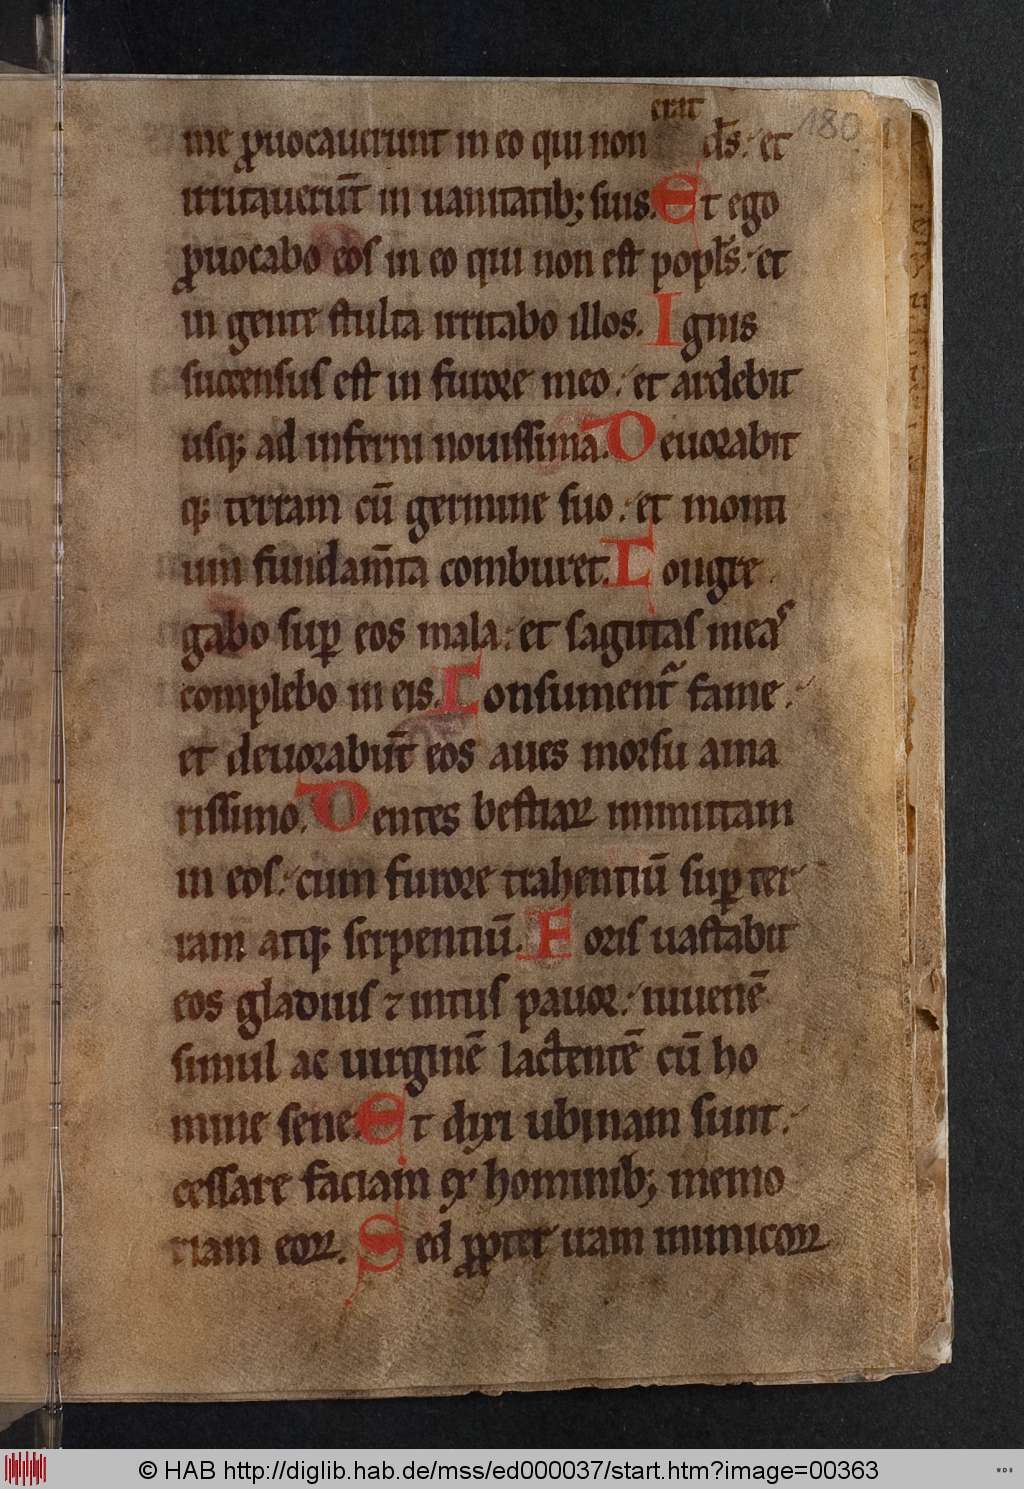 erit
180
me ꝓuocauerunt in eo qui non dš. et
irritauerūt in uanitatib; suis. Et ego
ꝓuocabo eos in eo qui non est popl̃s. et
in gente stulta irritabo illos. Ignis
succensus est in furore meo. et ardebit
usq; ad inferni nouissima. Deuorabit
q; terram cū germine suo. et monti
um fundam̄ta comburet. Congre
gabo suꝑ eos mala. et sagittas meas
complebo in eis. Consument᷑ fame.
et deuorabūt eos aues morsu ama
rissimo. Dentes bestiaꝝ inmittam
in eos. cum furore trahentiū suꝑ ter
ram atq; serpentiū. Foris uastabit
eos gladius ⁊ intus pauor. iuuenē
simul ac uirginē lactentē cū ho
mine sene. Et dixi ubinam sunt.
cessare faciam ex hominib; memo
riam eoꝝ. Sed ꝓpter iram inimicoꝝ
© HAB http://diglib.hab.de/mss/ed000037/start.htm?image=00363